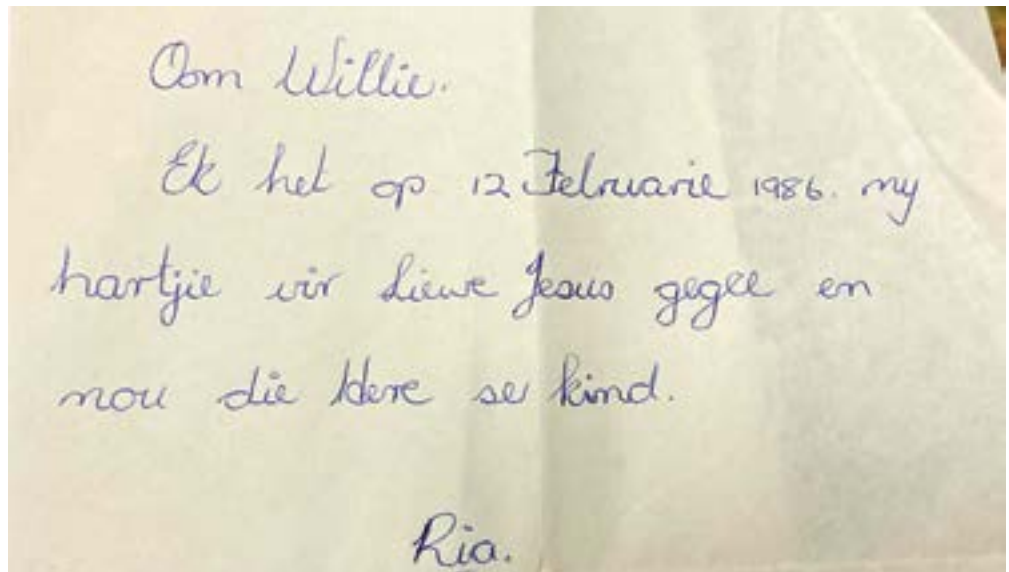 Oom Willie.
Ek het op 12 Februarie 1986. my
hartjie vir Liewe Jesus gegee en
nou die Here se kind.
Ria.